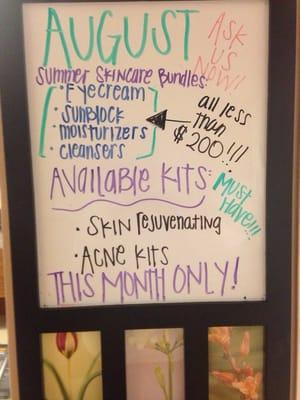 AUGUST
ASK
US
NOW!
Summer Skincare Bundles:
• Eyecream
• Sunblock
• moisturizers
• cleansers
all less
than
$200!!!
AVAILABLE KITS:
MUST
HAVE!!!
• SKIN rejuvenating
• ACNE KITS
THIS MONTH ONLY!